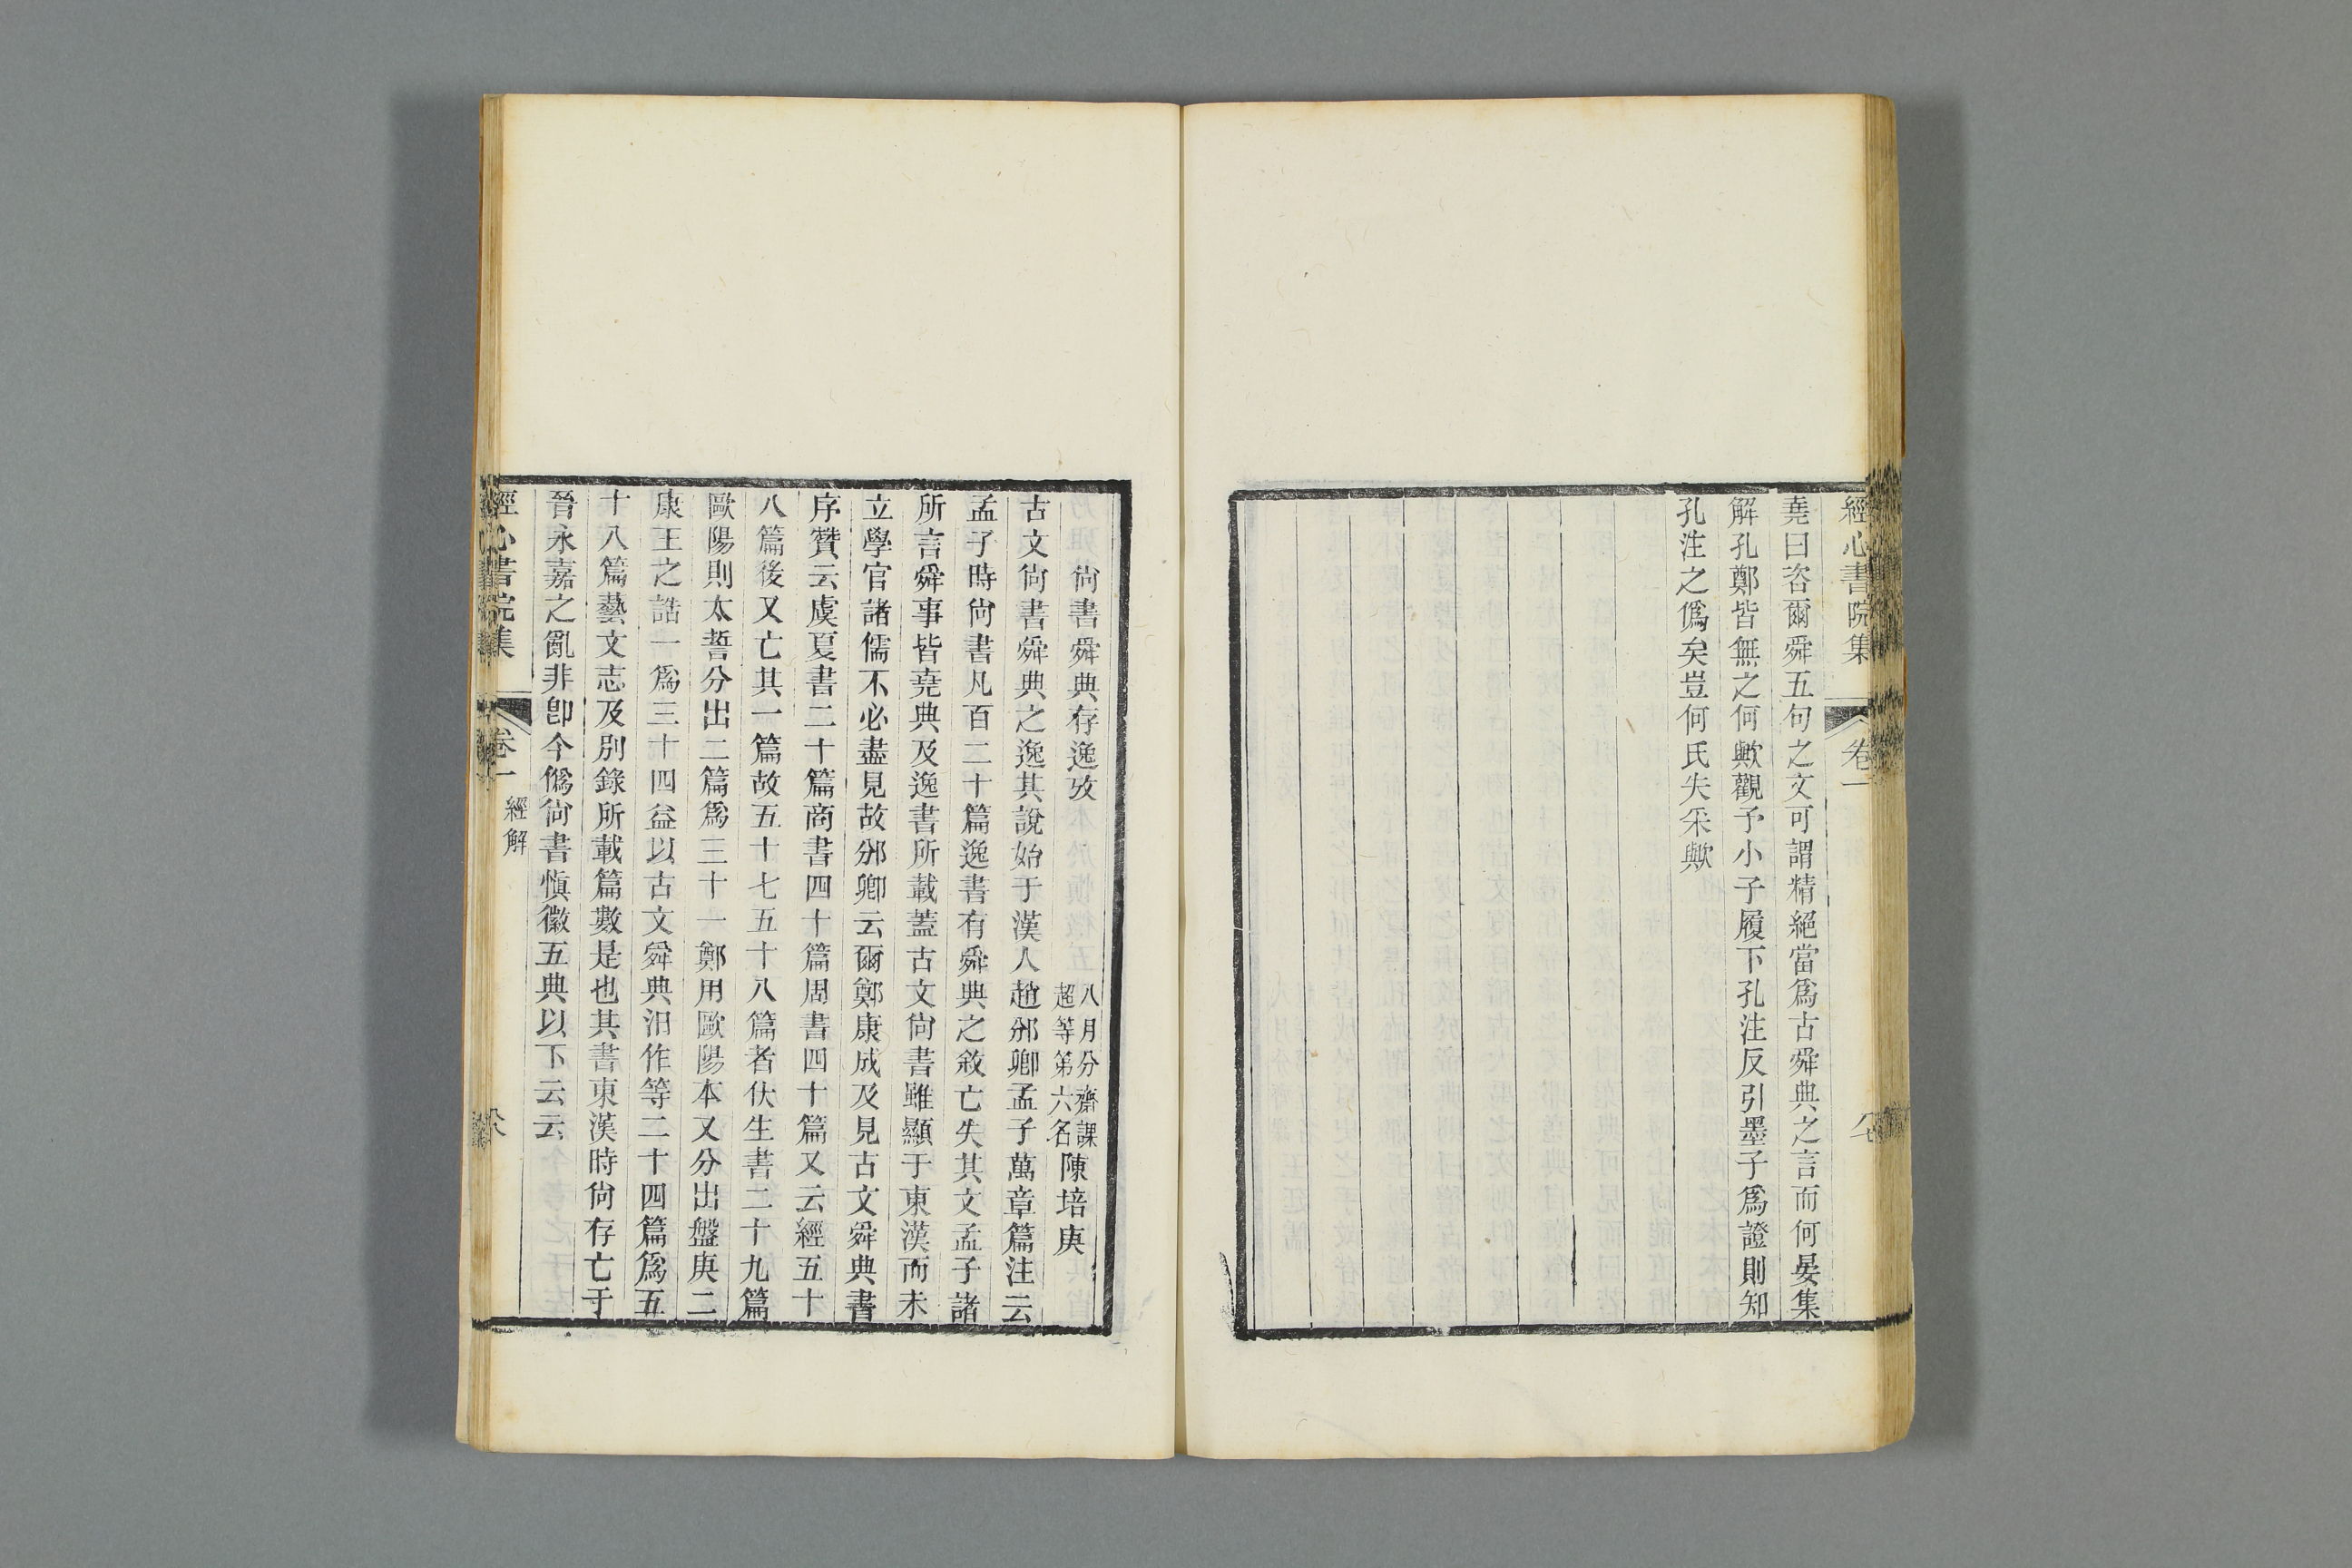 經心書院集 卷一
堯曰咨爾舜五句之文可謂精絕當爲古舜典之言而何晏集
解孔鄭皆無之何歟觀予小子履下孔注反引墨子爲證則知
孔注之僞矣豈何氏失采歟
尙書舜典存逸攷
八月分齋課
超等第六名
陳培庚
古文尙書舜典之逸其說始于漢人趙邠卿孟子萬章篇注云
孟子時尙書凡百二十篇逸書有舜典之敘亡失其文孟子諸
所言舜事皆堯典及逸書所載蓋古文尙書雖顯于東漢而未
立學官諸儒不必盡見故邠卿云爾鄭康成及見古文舜典書
序贊云虞夏書二十篇商書四十篇周書四十篇又云經五十
八篇後又亡其一篇故五十七五十八篇者伏生書二十九篇
歐陽則太誓分出二篇爲三十一鄭用歐陽本又分出盤庚二
康王之誥一爲三十四益以古文舜典汨作等二十四篇爲五
十八篇藝文志及別錄所載篇數是也其書東漢時尙存亡于
晉永嘉之亂非卽今僞尙書愼徽五典以下云云
經心書院集 卷一 經解 八